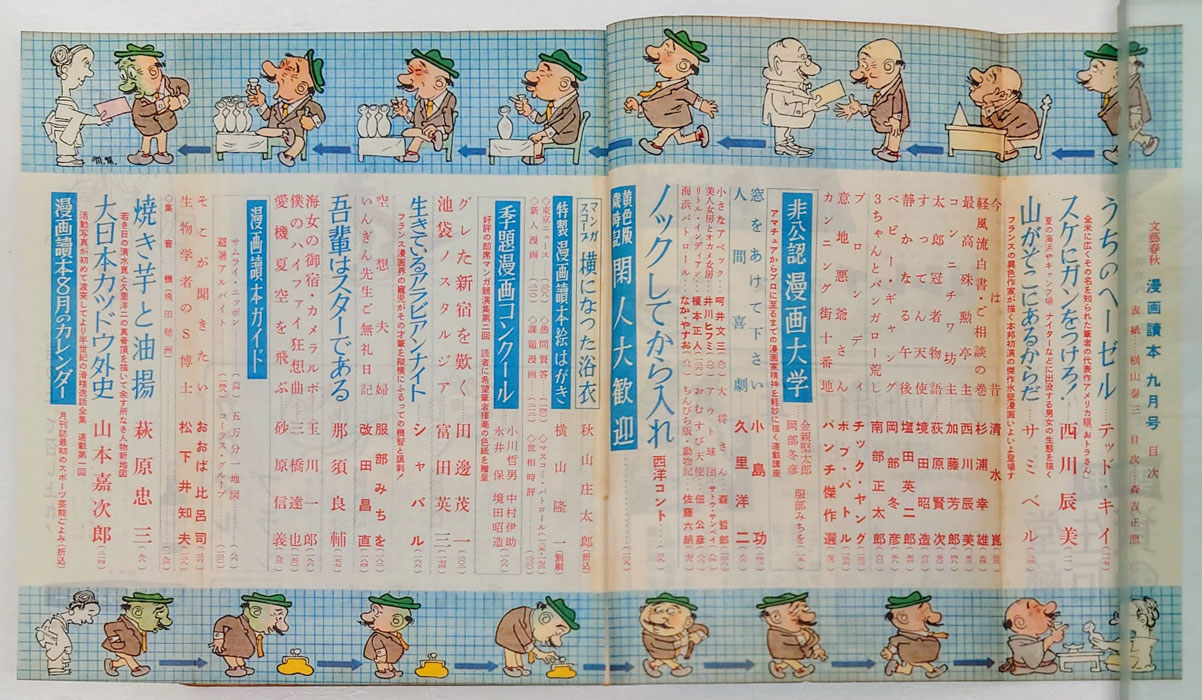 文藝春秋 漫画讀本 九月号 目次
表紙・横山泰三 目次・森吉正照
うちのヘーゼル テッド・キイ
全米に広くその名を知られた筆者の代表作アメリカ版〝おトラさん〟
スケにガンをつけろ! 西川辰美
夏の海浜やキャンプ場 ナイターなどに出没する男女の生態を描く
山がそこにあるからだ サミベル
フランスの異色作家が描く本邦初演の傑作氷壁漫画いよいよ登場す
今は昔 清水崑
経風流白書・ご相談の巻 杉浦幸雄
最高殊勲亭主 西川辰美
コンチワ坊主 加藤芳郎
太郎冠者物語 荻原賢次
すってん天使 境田昭造
静かなる午後 岡部冬彦
ベビーギャング 塩田英二郎
3ちゃんとバンガロー荒し 南部正太郎
ブロンディ チック・ヤング
意地悪爺さん ボブ・バトル
カンニング街十番地 パンチ傑作選
非公認漫画大学
金親堅太郎
岡部冬彦
服部みちを
アマチュアからプロに至るまでの漫画家精神を軽妙に描く連載講座
窓をあけて下さい 小島功
人間喜劇 久里洋二
小さなアベック 呵井文三
大将さん 森哲郎
美人女房とオカメ女房 井川ヒフミ
アウト球団 サトウサンペイ
リトル・インディアン 榎本正人
おむすび天使 佃公彦
海浜パトロール なかやすお
ちんぴら版・動物記 佐藤六朗
ノックしてから入れ 西洋コント
黄色版歳時記 閑人大歓迎
マンガスコープ 横になった浴衣 秋山庄太郎(折込)
特製漫画讀本絵はがき 横山隆一(別刷)
◇東京ニュース ◇愚問賢答 ◇マスコミ・パトロール
◇新人漫画 ◇課題漫画 ◇世相時評
季題漫画コンクール
小川哲男 中村伊助
永井保 境田昭造
好評の即席マンガ競演集第二回 読者に希望筆者揮毫の色紙を贈呈
グレた新宿を歎く 田邊茂一
池袋ノスタルジア 富田英三
生きているアラビアンナイト シャバル
フランス漫画界の寵児がその才筆を縦横にふるっての機智と諷刺!
空想夫婦 服部みちを
いんぎん先生ご無礼日記 改田昌直
吾輩はスターである 那須良輔
海女の御宿・カメラルポ 玉川一郎
僕のハイファイ狂想曲 三橋達也
愛機夏空を飛ぶ 砂原信義
漫画讀本ガイド
サムライ・ニッポン 五万分一地図
避暑アルバイト コーラス・グループ
そこが聞きたい おおば比呂司
生物学者のS博士 松下井知夫
◇集音機(飛田穂洲)
焼き芋と油揚 萩原忠三
若き日の清水崑と久里洋二の真骨頂を描いて余す所なき人物新地図
大日本カツドウ外史 山本嘉次郎
活動写真が初めて渡来してより半世紀の滑稽逸話全集 連載第一回
漫画讀本8月のカレンダー
月刊誌最初のスポーツ芸能ごよみ(折込)